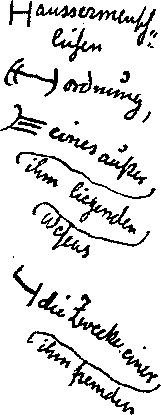 Haussermenschlichen
ordnung,
eines außer
ihm liegenden
Wesens
die Zwecke einer
ihm fremden